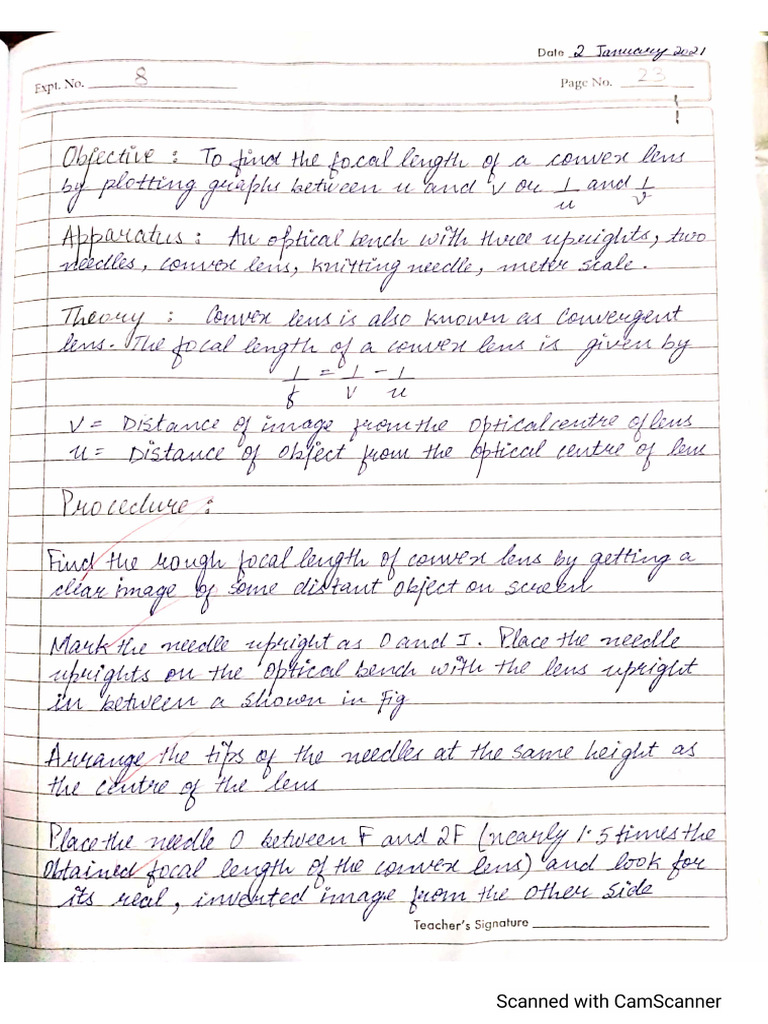 Date 2 January 2021
Expt. No. 8
Page No. 23
Objective : To find the focal length of a convex lens
by plotting graphs between u and v or 1/u and 1/v
Apparatus : An optical bench with three uprights, two
needles, convex lens, knitting needle, meter scale.
Theory : Convex lens is also known as convergent
lens. The focal length of a convex lens is given by
1/f = 1/v - 1/u
v = Distance of image from the optical centre of lens
u = Distance of object from the optical centre of lens
Procedure :
Find the rough focal length of convex lens by getting a
clear image of some distant object on screen
Mark the needle upright as O and I. Place the needle
uprights on the optical bench with the lens upright
in between a shown in fig
Arrange the tips of the needles at the same height as
the centre of the lens
Place the needle O between F and 2F (nearly 1.5 times the
obtained focal length of the convex lens) and look for
its real, inverted image from the other side
Teacher's Signature
Scanned with CamScanner